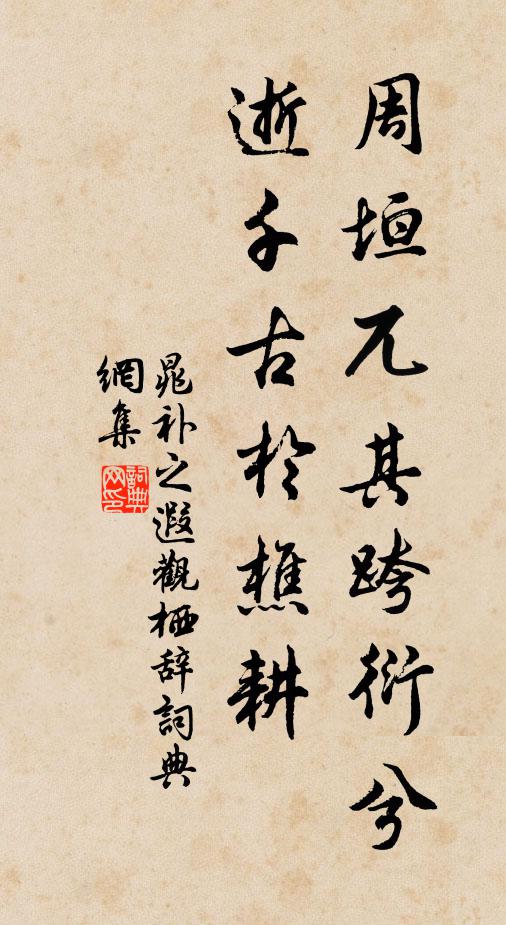 周垣兀其跨衍兮
逝千古於樵耕
晁补之遐觀栖辞詞典
網集
詞典網印